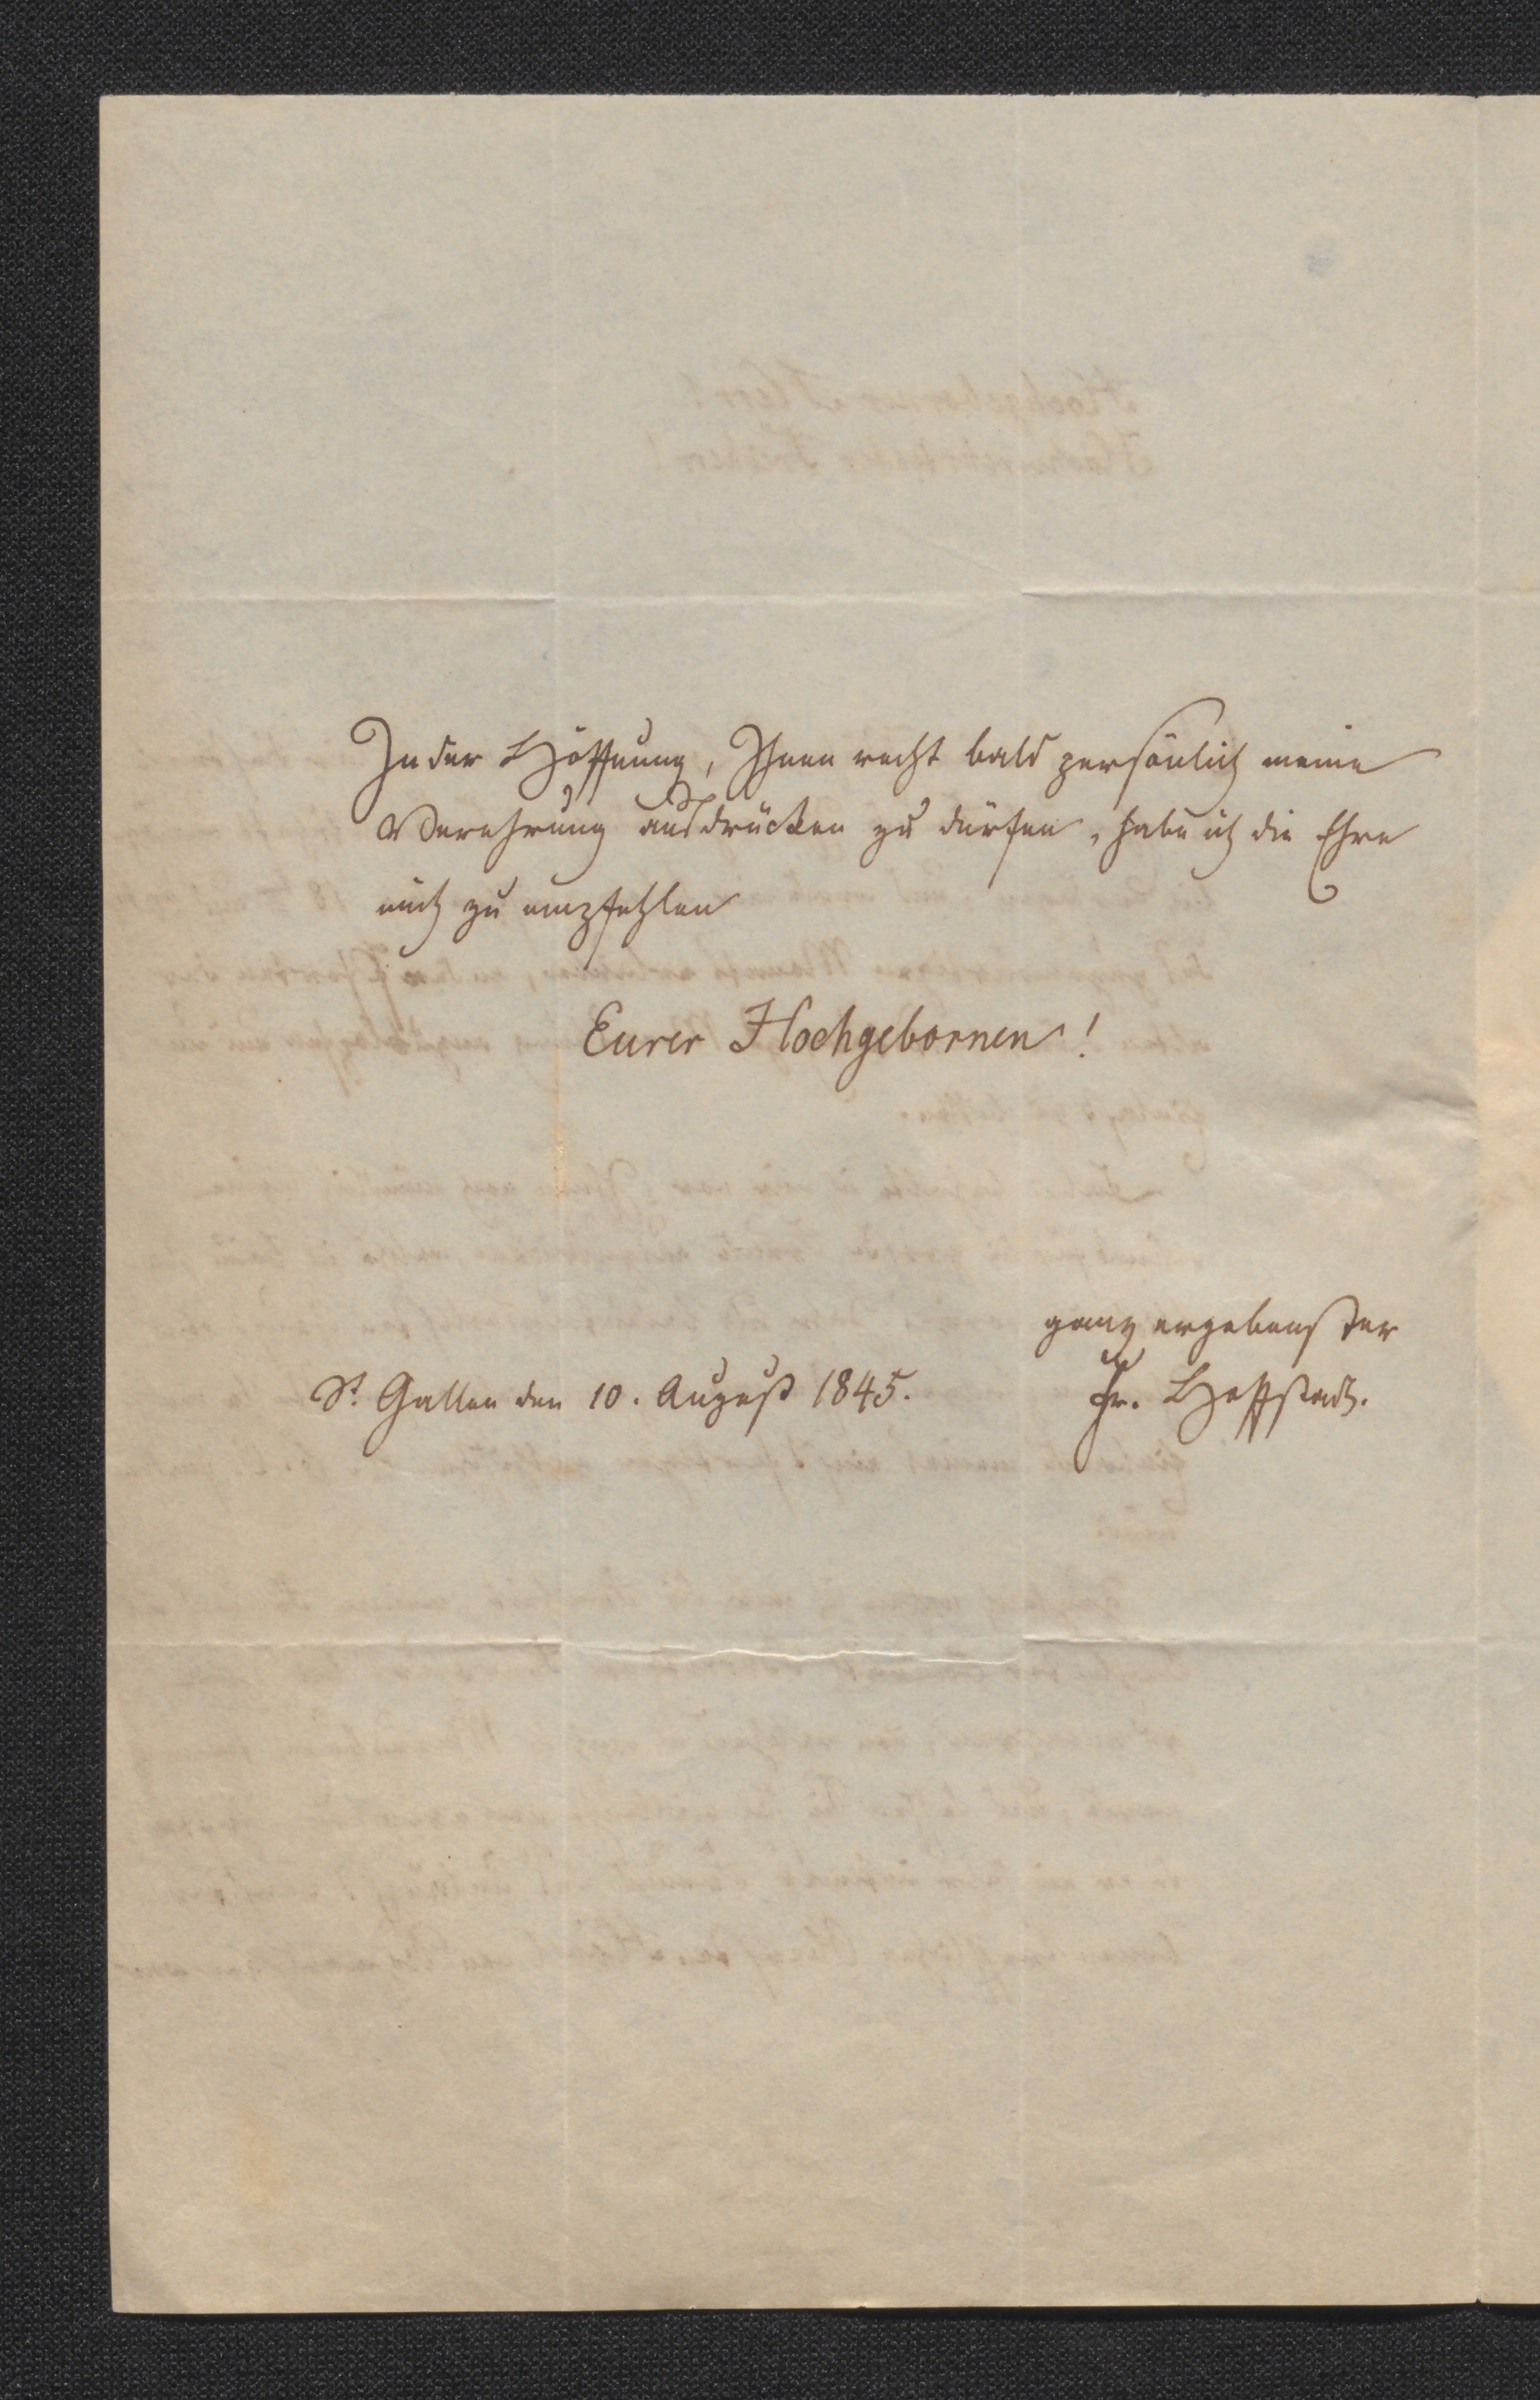 In der Hoffnung, Ihnen recht bald persönlich meine
Verehrung ausdrücken zu dürfen, habe ich die Ehre
mich zu empfehlen
Eurer Hochgebornen!
ganz ergebenster
St. Gallen den 10. August 1845.
Fr.